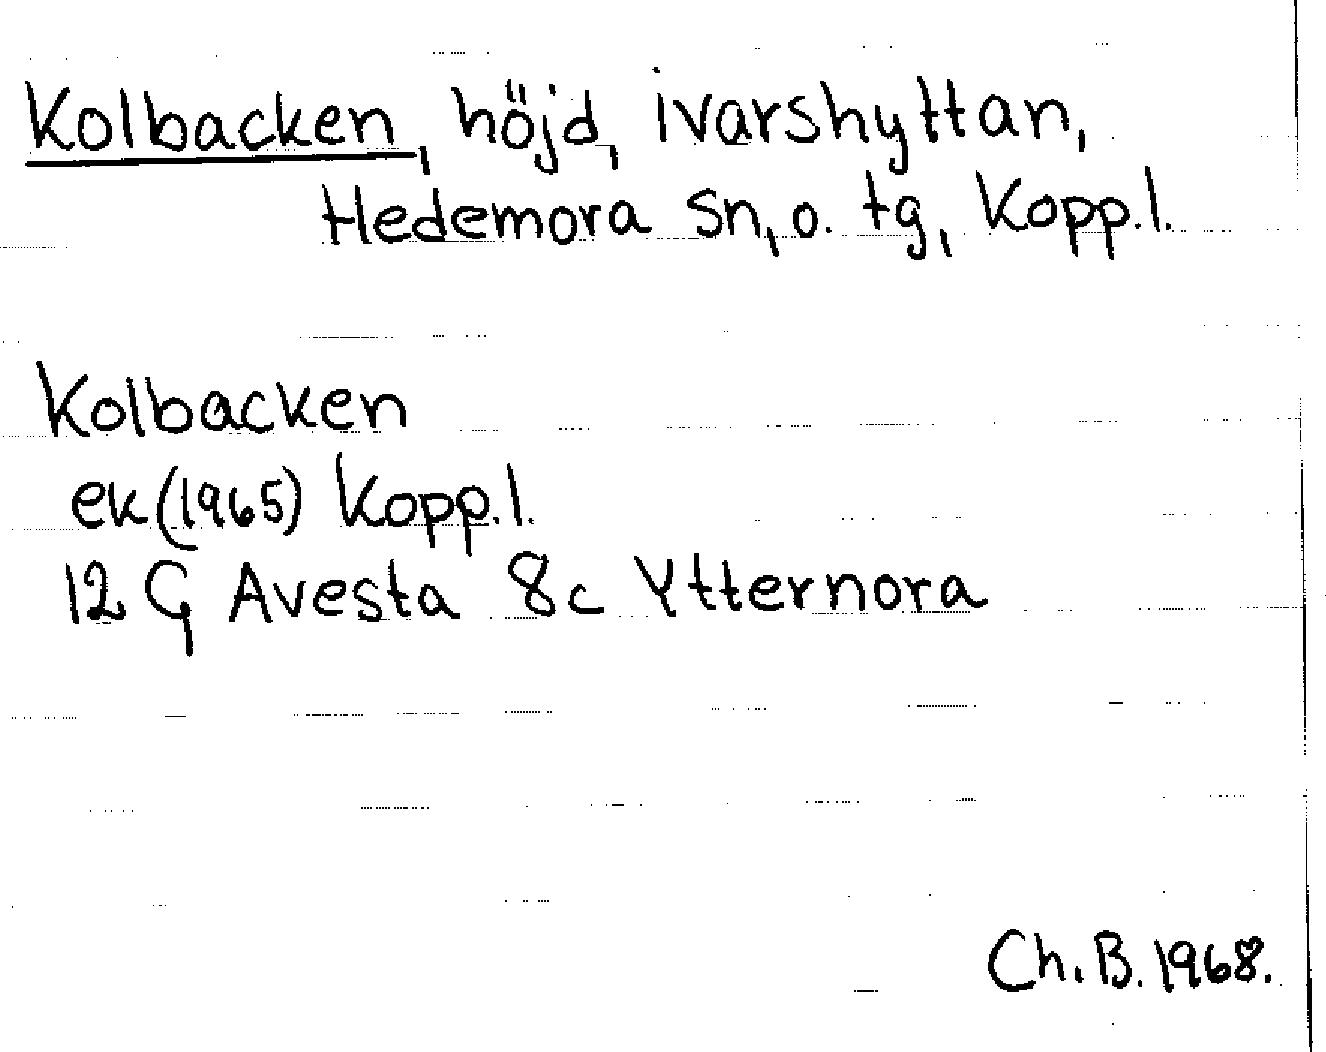 Kolbacken, höjd, ivarshyttan,
Hedemora sn, o. tg, Kopp.l.
Kolbacken
ek (1965) Kopp.l.
12 G Avesta 8c Ytternora
Ch. B. 1968.